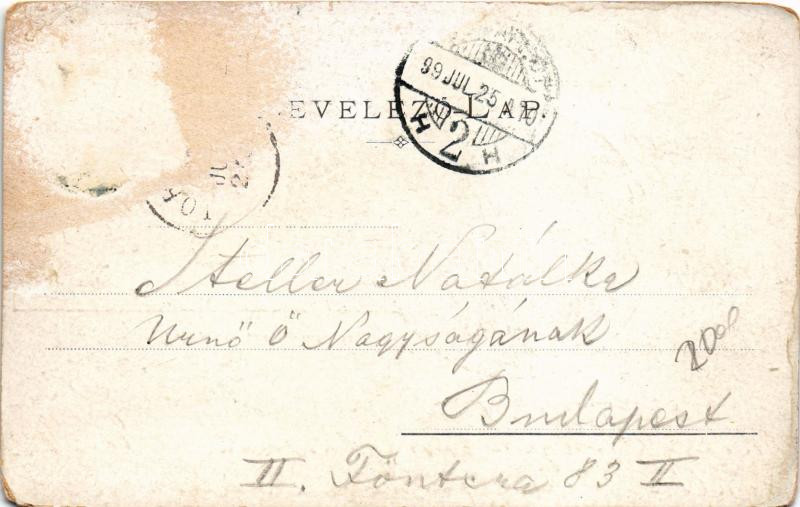 EVELEZŐ-LAP.
99 JUL. 25
H 2 H
JU
TOK
Steller Natálka
Urnő Ő Nagyságának
2000
Budapest
II. Főutcza 83 II